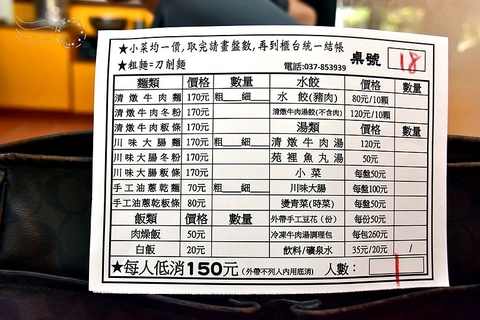 ★小菜均一價,取完請畫盤數,再到櫃台統一結帳
★粗麵=刀削麵 電話:037-853939 桌號 18
麵類 價格 數量 水餃 價格 數量
清燉牛肉麵 170元 粗__細__ 水 餃(豬肉) 80元/10顆
清燉牛肉冬粉 170元 清燉牛肉湯餃(不含肉) 120元/10顆
清燉牛肉粄條 170元 湯類 價格 數量
川味大腸麵 170元 粗__細__ 清燉牛肉湯 120元
川味大腸冬粉 170元 苑裡魚丸湯 50元
川味大腸粄條 170元 小菜 每盤50元
手工油蔥乾麵 70元 粗__細__ 川味大腸 每盤100元
手工油蔥粄條 80元 燙青菜(時菜) 每盤50元
飯類 價格 數量 外帶手工豆花(份) 每份50元
肉燥飯 50元 冷凍牛肉湯調理包 每包260元
白飯 20元 飲料/礦泉水 35元/20元 /
★每人低消150元(外帶不列入內用底消) 人數: 1